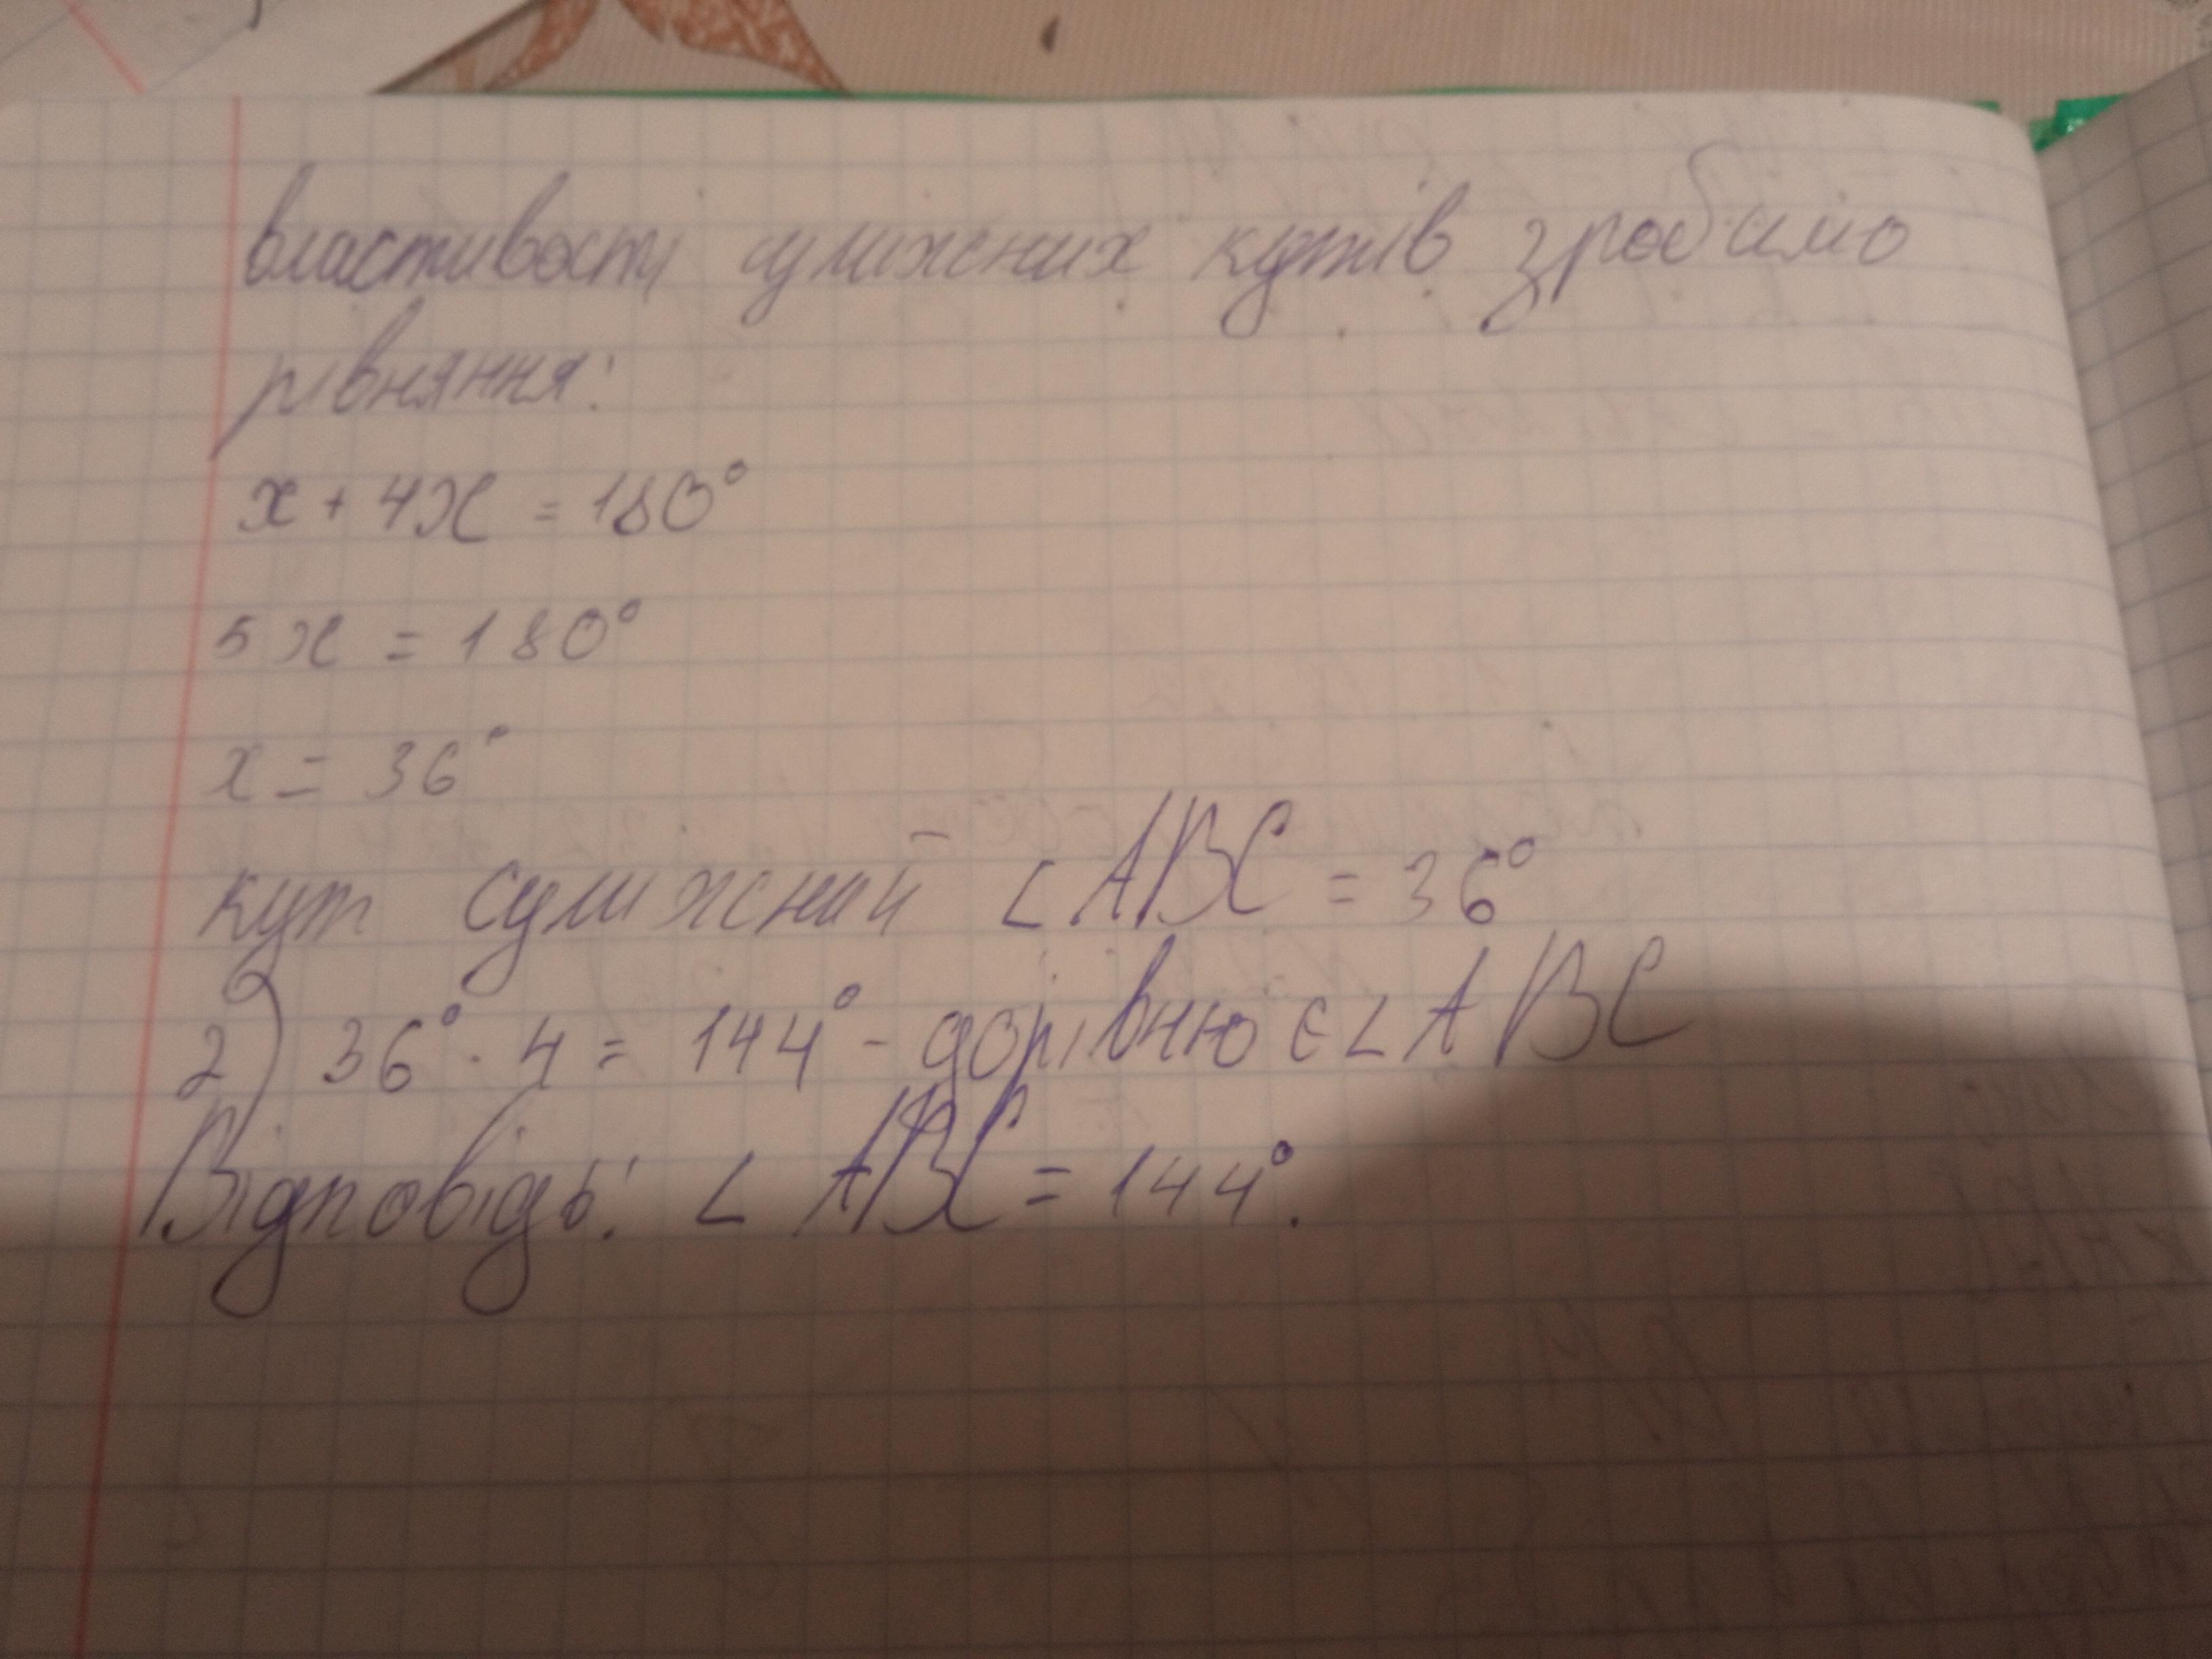 властивості суміжних кутів зробимо
рівняння:
x + 4x = 180°
5x = 180°
x = 36°
кут суміжний ∠ABC = 36°
2) 36° · 4 = 144° - дорівнює ∠ABC
Відповідь: ∠ABC = 144°.